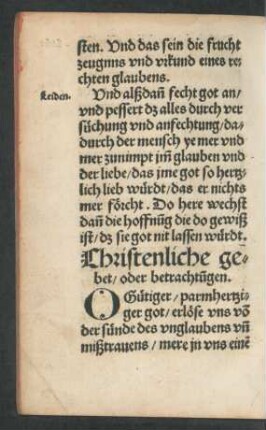 sten. Vnd das sein die frucht
zeugnns vnd vrkund eines re
chten glaubens.
Leiden.
Vnd alßdañ fecht got an/
vnd pessert dz alles durch ver
süchung vnd anfechtung/da-
durch der mensch ye mer vnd
mer zunimpt jm̃ glauben vnd
der liebe/das jme got so hertz
lich lieb würdt/das er nichts
mer förcht. Do here wechst
dañ die hoffnũg die do gewiß
ist/dz sie got nit lassen würdt.
Christenliche ge-
bet/oder betrachtũgen.
O Gütiger/parmhertzi-
ger got/erlöse vns võ
der sünde des vnglaubens vñ
mißtrauens/mere jn vns einẽ